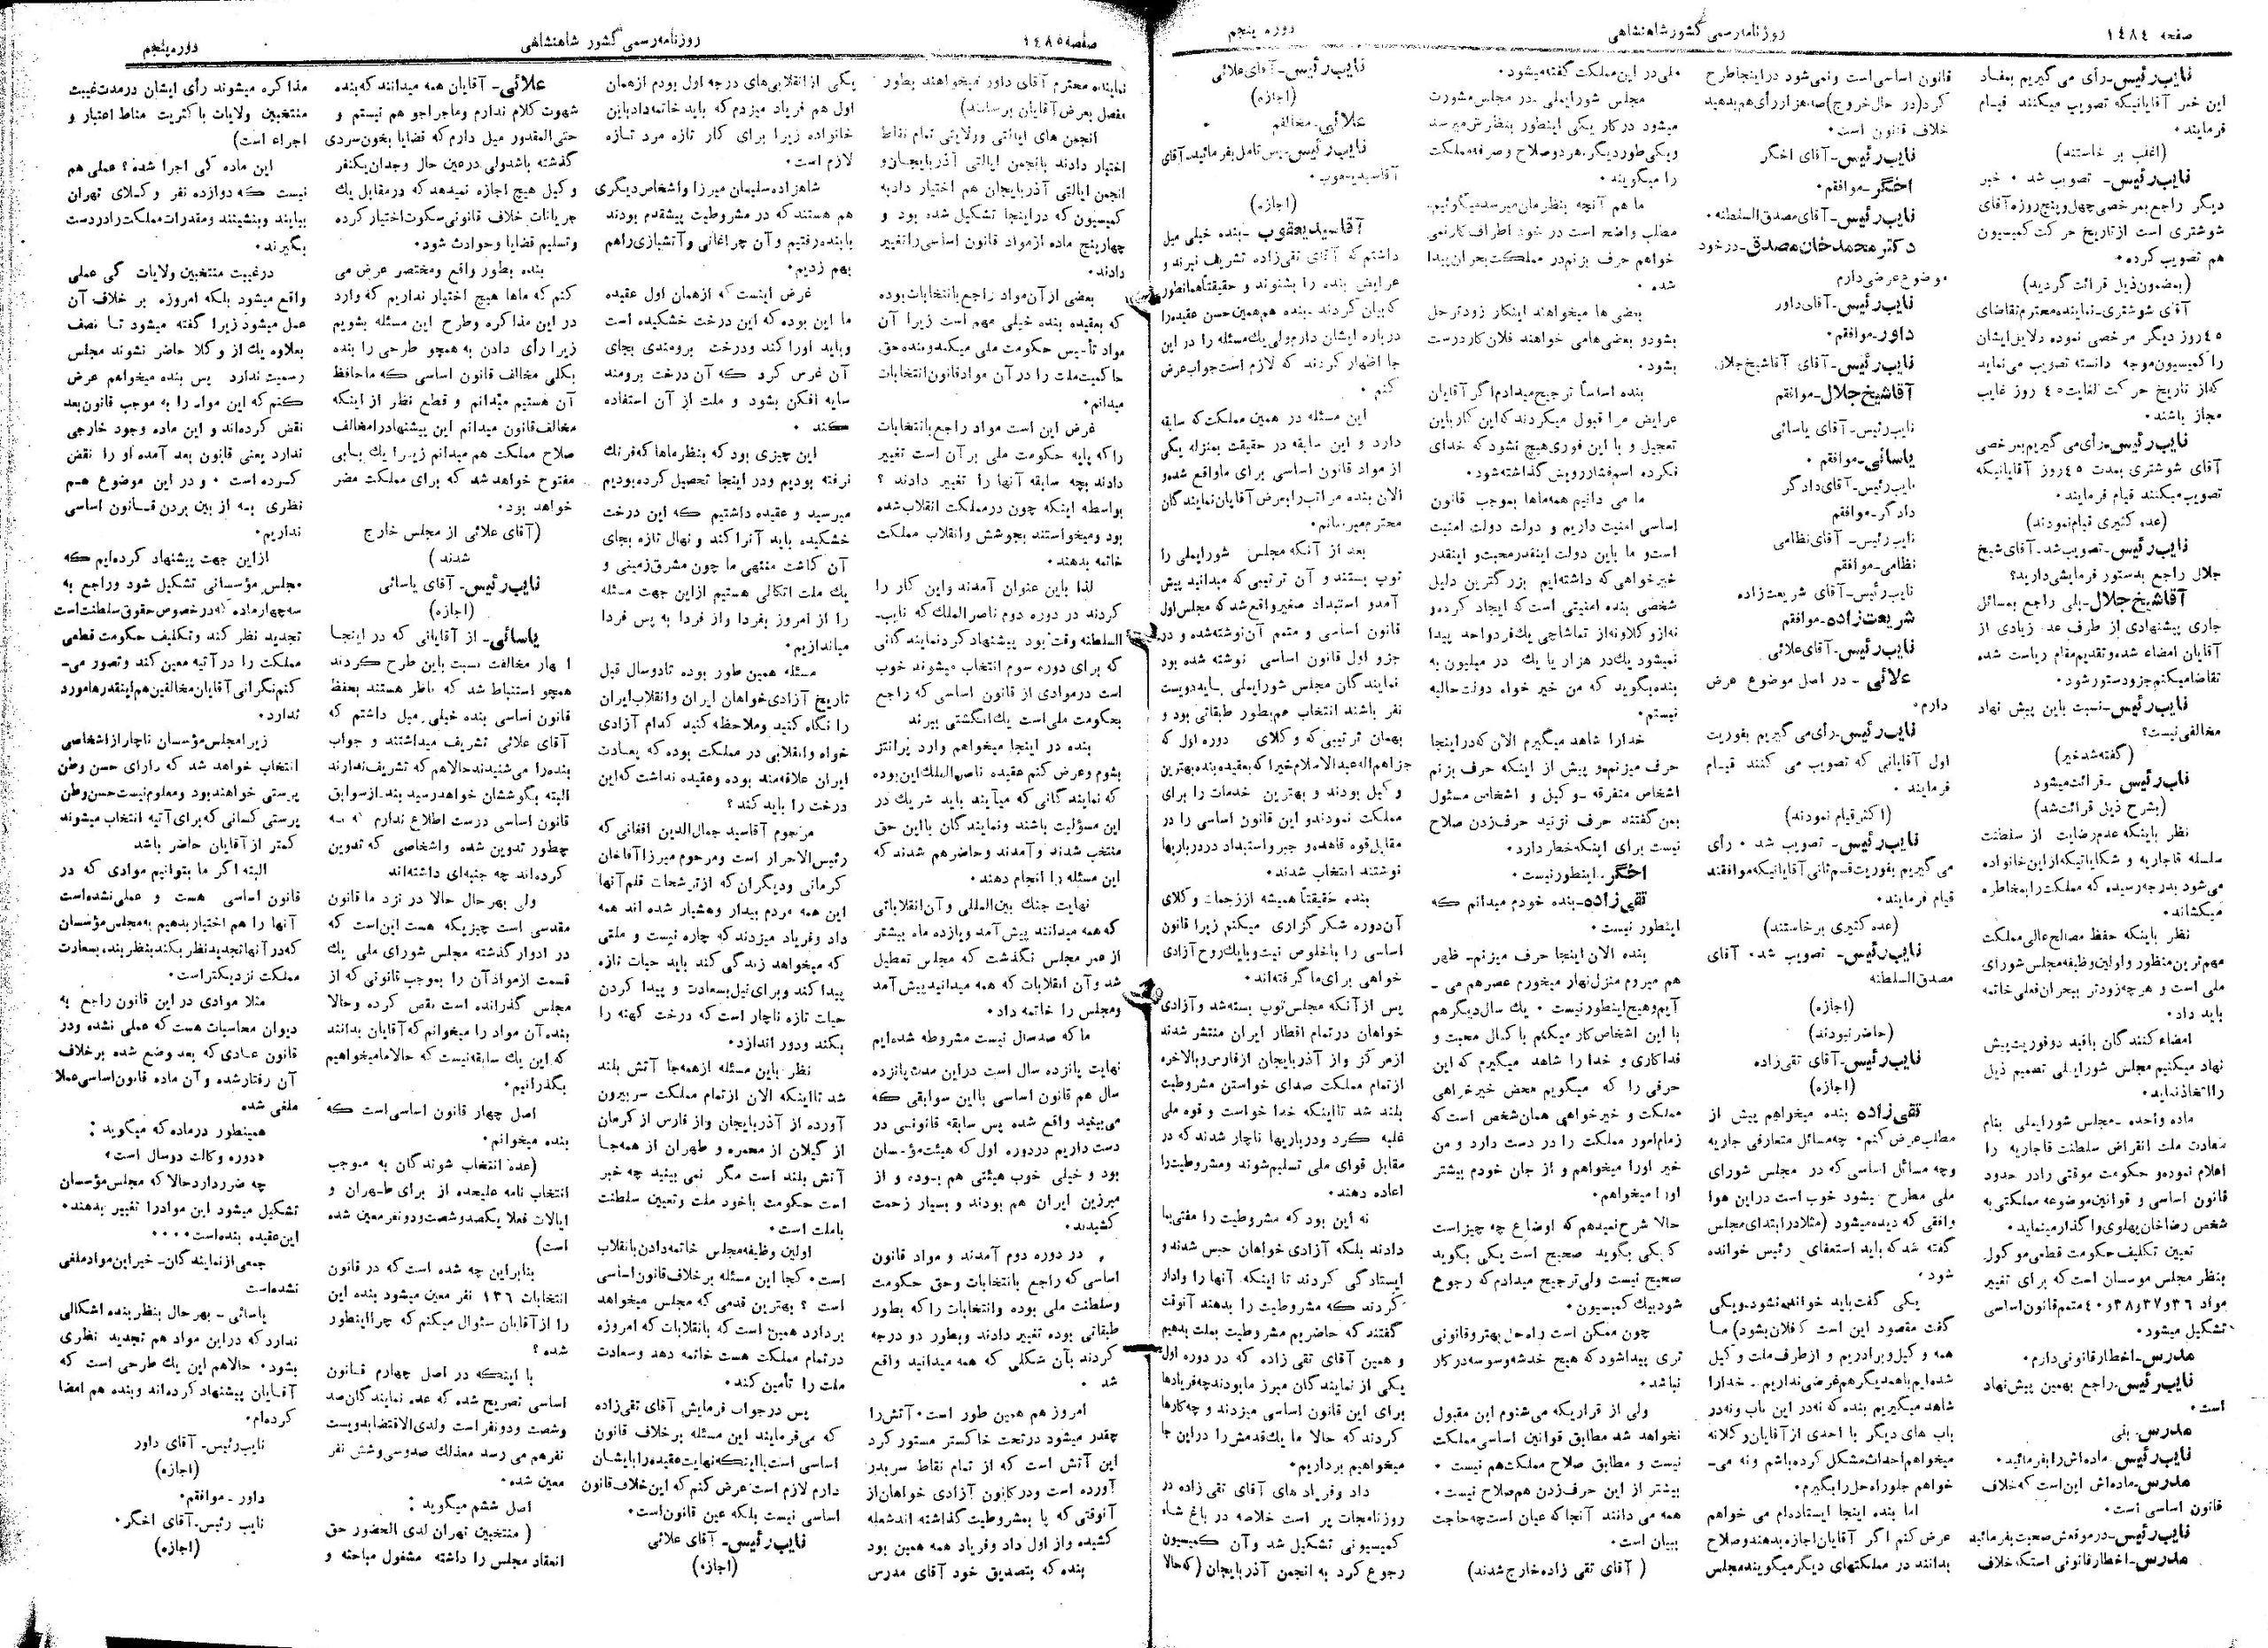 صفحه ١٤٨٤
روزنامه رسمی کشور شاهنشاهی
دوره پنجم
نایب رئیس ـ رأی می گیریم بمفاد
این خبر آقایانیکه تصویب میکنند قیام
فرمایند .
(اغلب بر خاستند)
نایب رئیس ـ تصویب شد . خبر
دیگر راجع بمرخصی چهل و پنج روزه آقای
شوشتری است از تاریخ حرکت کمیسیون
هم تصویب کرده .
(بمضمون ذیل قرائت گردید)
آقای شوشتری ـ نماینده محترم تقاضای
٤٥ روز دیگر مرخصی نموده دلایل ایشان
را کمیسیون موجه دانسته تصویب می نماید
که از تاریخ حرکت لغایت ٤٥ روز غایب
مجاز باشند .
نایب رئیس ـ رأی می گیریم بمرخصی
آقای شوشتری بمدت ٤٥ روز آقایانیکه
تصویب میکنند قیام فرمایند .
(عده کثیری قیام نمودند)
نایب رئیس ـ تصویب شد ـ آقای شیخ
جلال راجع بدستور فرمایشی دارید؟
آقا شیخ جلال ـ بلی راجع بمسائل
جاری پیشنهادی از طرف عده زیادی از
آقایان امضاء شده و تقدیم مقام ریاست شده
تقاضا میکنم جزو دستور شود .
نایب رئیس ـ نسبت باین پیش نهاد
مخالفی نیست؟
(گفته شد خیر)
نایب رئیس ـ قرائت میشود
(بشرح ذیل قرائت شد)
نظر باینکه عدم رضایت از سلطنت
سلسله قاجاریه و شکایاتیکه از این خانواده
می شود بدرجه رسیده که مملکت را بمخاطره
میکشاند .
نظر باینکه حفظ مصالح عالی مملکت
مهم ترین منظور و اولین وظیفه مجلس شورای
ملی است و هرچه زودتر ببحران فعلی خاتمه
باید داد .
امضاء کنندگان باقید دو فوریت پیش
نهاد میکنیم مجلس شورایملی تصمیم ذیل
را اتخاذ نماید .
ماده واحده ـ مجلس شورایملی بنام
سعادت ملت انقراض سلطنت قاجاریه را
اعلام نموده و حکومت موقتی را در حدود
قانون اساسی و قوانین موضوعه مملکتی به
شخص رضاخان پهلوی واگذار مینماید .
تعیین تکلیف حکومت قطعی موکول
بنظر مجلس موسسان است که برای تغییر
مواد ٣٦ و ٣٧ و ٣٨ و ٤٠ متمم قانون اساسی
تشکیل میشود .
مدرس ـ اخطار قانونی دارم .
نایب رئیس ـ راجع بهمین پیش نهاد
است .
مدرس ـ بلی
نایب رئیس ـ ماده اش را بفرمائید .
مدرس ـ ماده اش این است که خلاف
قانون اساسی است .
نایب رئیس ـ در موقعش صحبت بفرمائید
مدرس ـ اخطار قانونی است که خلاف
قانون اساسی است و نمی شود در اینجا طرح
کرد (در حال خروج) صد هزار رأی هم بدهید
خلاف قانون است .
نایب رئیس ـ آقای اخگر
اخگر ـ موافقم .
نایب رئیس ـ آقای مصدق السلطنه .
دکتر محمد خان مصدق ـ در خود
موضوع عرضی دارم
نایب رئیس ـ آقای داور
داور ـ موافقم .
نایب رئیس ـ آقای آقا شیخ جلال
آقا شیخ جلال ـ موافقم
نایب رئیس ـ آقای یاسائی
یاسائی ـ موافقم .
نایب رئیس ـ آقای دادگر
دادگر ـ موافقم
نایب رئیس ـ آقای نظامی
نظامی ـ موافقم
نایب رئیس ـ آقای شریعت زاده
شریعت زاده ـ موافقم
نایب رئیس ـ آقای علائی
علائی ـ در اصل موضوع عرض
دارم .
نایب رئیس ـ رأی می گیریم بفوریت
اول آقایانی که تصویب می کنند قیام
فرمایند .
(اکثر قیام نمودند)
نایب رئیس ـ تصویب شد . رأی
می گیریم بفوریت قسم ثانی آقایانیکه موافقند
قیام فرمایند .
(عده کثیری برخاستند)
نایب رئیس ـ تصویب شد . آقای
مصدق السلطنه
(اجازه)
(حاضر نبودند)
نایب رئیس ـ آقای تقی زاده
(اجازه)
تقی زاده بنده میخواهم پیش از
مطلب عرض کنم . چه مسائل متعارفی جاریه
وچه مسائل اساسی که در مجلس شورای
ملی مطرح میشود خوب است در این هوا
واقفی که دیده میشود (مثلا در ابتدای مجلس
گفته شد که باید استعفای رئیس خوانده
شود .
یکی گفت باید خوانده نشود و یکی
گفت مقصود این است که فلان بشود) ما
همه وکیل و برادریم و از طرف ملت وکیل
شده ایم با همدیگر هم غرضی نداریم . خدا را
شاهد میگیریم بنده که نه در این باب و نه در
باب های دیگر با احدی از آقایان وکلا نه
میخواهم احداث مشکل کرده باشم و نه می ـ
خواهم جلو راه حل را بگیرم .
اما بنده اینجا ایستاده ام می خواهم
عرض کنم اگر آقایان اجازه بدهند و صلاح
بدانند در مملکتهای دیگر میگویند مجلس
ملی در این مملکت گفته میشود .
مجلس شورایملی ـ در مجلس مشورت
میشود در کار یکی اینطور بنظرش میرسد
ویکی طور دیگر . هر دو صلاح و صرفه مملکت
را میگویند .
ما هم آنچه بنظرمان میرسد میگوئیم.
مطلب واضح است در خود اطراف کار نمی
خواهم حرف بزنم در مملکت بحران پیدا
شده .
بعضی ها میخواهند اینکار زودتر حل
بشود و بعضی ها می خواهند فلان کار درست
بشود .
بنده اساساً ترجیح میدادم اگر آقایان
عرایض مرا قبول میکردند که این کار باین
تعجیل و با این فوری هیچ نشود که خدای
نکرده اسم فشار رویش گذاشته شود .
ما می دانیم همه ماها بموجب قانون
اساسی امنیت داریم و دولت دولت امنیت
است و ما باین دولت اینقدر محبت و اینقدر
خیرخواهی که داشته ایم بزرگترین دلیل
شخصی بنده امنیتی است که ایجاد کرده و
نه از وکلا و نه از تماشاچی یک فرد واحد پیدا
نمیشود یک در هزار یا یک در میلیون به
بنده بگوید که من خیر خواه دولت حالیه
نیستم .
خدا را شاهد میگیرم الان که در اینجا
حرف میزنم و پیش از اینکه حرف بزنم
اشخاص متفرقه ـ وکیل و اشخاص مسئول
بمن گفتند حرف نزنید حرف زدن صلاح
نیست برای اینکه خطر دارد .
اخگر ـ اینطور نیست .
تقی زاده ـ بنده خودم میدانم که
اینطور نیست .
بنده الان اینجا حرف میزنم ـ ظهر
هم میروم منزل نهار میخورم عصر هم می ـ
آیم و هیچ اینطور نیست . یک سال دیگر هم
با این اشخاص کار میکنم با کمال محبت و
فداکاری و خدا را شاهد میگیرم که این
حرفی را که میگویم محض خیرخواهی
مملکت و خیرخواهی همان شخص است که
زمام امور مملکت را در دست دارد و من
خیر او را میخواهم و از جان خودم بیشتر
او را میخواهم .
حالا شرح نمیدهم که اوضاع چه چیز است
که یکی بگوید صحیح است یکی بگوید
صحیح نیست ولی ترجیح میدادم که رجوع
شود بیک کمیسیون .
چون ممکن است راه حل بهتر و قانونی
تری پیدا شود که هیچ خدشه و وسوسه در کار
نباشد .
ولی از قراریکه می شنوم این مقبول
نخواهد شد مطابق قوانین اساسی مملکت
نیست و مطابق صلاح مملکت هم نیست .
بیشتر از این حرف زدن هم صلاح نیست .
همه می دانند آنجا که عیان است چه حاجت
ببیان است .
( آقای تقی زاده خارج شدند)
نایب رئیس ـ آقای علائی
(اجازه)
علائی ـ مخالفم
نایب رئیس ـ پس تامل بفرمائید ـ آقای
آقا سید یعقوب .
(اجازه)
آقا سید یعقوب ـ بنده خیلی میل
داشتم که آقای تقی زاده تشریف نبرند و
عرایض بنده را بشنوند و حقیقتاً همانطور
که بیان کردند ـ بنده هم همین حسن عقیده را
درباره ایشان دارم ولی یک مسئله را در این
جا اظهار کردند که لازم است جواب عرض
کنم .
این مسئله در همین مملکت که سابقه
دارد و این سابقه در حقیقت بمنزله یکی
از مواد قانون اساسی برای ما واقع شده و
الان بنده مراتب را بعرض آقایان نمایندگان
محترم میرسانم .
بعد از آنکه مجلس شورایملی را
توپ بستند و آن ترتیبی که میدانید پیش
آمد و استبداد صغیر واقع شد که مجلس اول
قانون اساسی و متمم آن نوشته شده و در
جزو اول قانون اساسی نوشته شده بود
نمایندگان مجلس شورایملی باید دویست
نفر باشند انتخاب هم بطور طبقاتی بود و
بهمان ترتیبی که وکلای دوره اول که
جزاهم الله عبدالاسلام خیرا که بعقیده بنده بهترین
وکیل بودند و بهترین خدمات را برای
مملکت نمودند و این قانون اساسی را در
مقابل قوه قاهده و جبر و استبداد در دربارها
نوشتند انتخاب شدند .
بنده حقیقتاً همیشه از زحمات وکلای
آن دوره شکرگزاری میکنم زیرا قانون
اساسی را با خلوص نیت و با یک روح آزادی
خواهی برای ما گرفته اند .
پس از آنکه مجلس توپ بسته شد و آزادی
خواهان در تمام اقطار ایران منتشر شدند
از مرکز و از آذربایجان از فارس و بالاخره
از تمام مملکت صدای خواستن مشروطیت
بلند شد تا اینکه خدا خواست و قوه ملی
غلبه کرد و درباریها ناچار شدند که در
مقابل قوای ملی تسلیم شوند و مشروطیت را
اعاده دهند .
نه این بود که مشروطیت را مفتی بما
دادند بلکه آزادی خواهان حبس شدند و
ایستادگی کردند تا اینکه آنها را وادار
کردند که مشروطیت را بدهند آنوقت
گفتند که حاضریم مشروطیت بملت بدهیم
و همین آقای تقی زاده که در دوره اول
یکی از نمایندگان مبرز ما بودند چه فریادها
برای این قانون اساسی میزدند و چه کارها
کردند که حالا ما یک قدمش را در این جا
میخواهیم برداریم .
داد و فریاد های آقای تقی زاده در
روزنامجات پر است خلاصه در باغ شاه
کمیسیونی تشکیل شد و آن کمیسیون
رجوع کرد به انجمن آذربایجان (که حالا
صفحه ١٤٨٥
روزنامه رسمی کشور شاهنشاهی
دوره پنجم
نماینده محترم آقای داور میخواهند بطور
مفصل بعرض آقایان برسانند)
انجمن های ایالتی و ولایتی تمام نقاط
اختیار دادند بانجمن ایالتی آذربایجان و
انجمن ایالتی آذربایجان هم اختیار داد به
کمیسیون که در اینجا تشکیل شده بود و
چهار پنج ماده از مواد قانون اساسی را تغییر
دادند .
بعضی از آن مواد راجع بانتخابات بوده
که بعقیده بنده خیلی مهم است زیرا آن
مواد تأسیس حکومت ملی میکند و بنده حق
حاکمیت ملت را در آن مواد قانون انتخابات
میدانم .
غرض این است مواد راجع بانتخابات
را که پایه حکومت ملی بر آن است تغییر
دادند بچه سابقه آنها را تغییر دادند ؟
بواسطه اینکه چون در مملکت انقلاب شده
بود و میخواستند بجوشش و انقلاب مملکت
خاتمه بدهند .
لذا باین عنوان آمدند و این کار را
کردند در دوره دوم ناصرالملک که نایب ـ
السلطنه وقت بود پیشنهاد کرد نمایندگانی
که برای دوره سوم انتخاب میشوند خوب
است در موادی از قانون اساسی که راجع
بحکومت ملی است یک انگشتی ببرند
بنده در اینجا میخواهم وارد پرانتز
بشوم و عرض کنم عقیده ناصرالملک این بوده
که نمایندگانی که میآیند باید شریک در
این مسؤلیت باشند و نمایندگان با این حق
منتخب شدند و آمدند و حاضر هم شدند که
این مسئله را انجام دهند .
نهایت جنک بین المللی و آن انقلاباتی
که همه میدانند پیش آمد و یازده ماه بیشتر
از عمر مجلس نگذشت که مجلس تعطیل
شد و آن انقلابات که همه میدانید پیش آمد
و مجلس را خاتمه داد .
ما که صد سال نیست مشروطه شده ایم
نهایت پانزده سال است در این مدت پانزده
سال هم قانون اساسی با این سوابقی که
می بینید واقع شده پس سابقه قانونی در
دست داریم در دوره اول که هیئت مؤسسان
بود و خیلی خوب هیئتی هم بوده و از
مبرزین ایران هم بودند و بسیار زحمت
کشیدند .
در دوره دوم آمدند و مواد قانون
اساسی که راجع بانتخابات و حق حکومت
و سلطنت ملی بوده و انتخابات را که بطور
طبقاتی بوده تغییر دادند و بطور دو درجه
کردند بآن شکلی که همه میدانید واقع
شد .
امروز هم همین طور است . آتش را
چقدر میشود در تحت خاکستر مستور کرد
این آتش است که از تمام نقاط سر بدر
آورده است و در کانون آزادی خواهان از
آنوقتی که پا بمشروطیت گذاشته اند شعله
کشیده و از اول داد و فریاد همه همین بود
بنده که بتصدیق خود آقای مدرس
یکی از انقلابی های درجه اول بودم از همان
اول هم فریاد میزدم که باید خاتمه داد باین
خانواده زیرا برای کار تازه مرد تازه
لازم است .
شاهزاده سلیمان میرزا و اشخاص دیگری
هم هستند که در مشروطیت پیشقدم بودند
با بنده رفتیم و آن چراغانی و آتشبازی را هم
بهم زدیم .
غرض اینست که از همان اول عقیده
ما این بوده که این درخت خشکیده است
و باید او را کند و درخت برومندی بجای
آن غرس کرد که آن درخت برومند
سایه افکن بشود و ملت از آن استفاده
کند .
این چیزی بود که بنظر ماها که فرنک
نرفته بودیم و در اینجا تحصیل کرده بودیم
میرسید و عقیده داشتیم که این درخت
خشکیده باید آنرا کند و نهال تازه بجای
آن کاشت منتهی ما چون مشرق زمینی و
یک ملت اتکالی هستیم از این جهت مسئله
را از امروز بفردا و از فردا به پس فردا
میاندازیم .
مسئله همین طور بوده تا دو سال قبل
تاریخ آزادی خواهان ایران و انقلاب ایران
را نگاه کنید و ملاحظه کنید کدام آزادی
خواه و انقلابی در مملکت بوده که بسعادت
ایران علاقه مند بوده و عقیده نداشت که این
درخت را باید کند ؟
مرحوم آقا سید جمال الدین افغانی که
رئیس الاحرار است و مرحوم میرزا آقاخان
کرمانی و دیگران که از ترشحات قلم آنها
این همه مردم بیدار و هشیار شده اند همه
داد و فریاد میزدند که چاره نیست و ملتی
که میخواهد زندگی کند باید حیات تازه
پیدا کند و برای نیل بسعادت و پیدا کردن
حیات تازه ناچار است که درخت کهنه را
بکند و دور اندازد .
نظر باین مسئله از همه جا آتش بلند
شد تا اینکه الان از تمام مملکت سر بیرون
آورده از آذربایجان و از فارس از کرمان
از گیلان از محمره و طهران از همه جا
آتش بلند است مگر نمی بینید چه خبر
است حکومت با خود ملت و تعیین سلطنت
با ملت است .
اولین وظیفه مجلس خاتمه دادن بانقلاب
است . کجا این مسئله بر خلاف قانون اساسی
است ؟ بهترین قدمی که مجلس میخواهد
بردارد همین است که بانقلابات که امروزه
در تمام مملکت هست خاتمه دهد و سعادت
ملت را تأمین کند .
پس در جواب فرمایش آقای تقی زاده
که می فرمایند این مسئله بر خلاف قانون
اساسی است با اینکه نهایت عقیده را بایشان
دارم لازم است عرض کنم که این خلاف قانون
اساسی نیست بلکه عین قانون است .
نایب رئیس ـ آقای علائی
(اجازه)
علائی ـ آقایان همه میدانند که بنده
شهوت کلام ندارم و ماجراجو هم نیستم و
حتی المقدور میل دارم که قضایا بخون سردی
گذشته باشد ولی در عین حال وجدان یکنفر
وکیل هیچ اجازه نمیدهد که در مقابل یک
جریانات خلاف قانونی سکوت اختیار کرده
و تسلیم قضایا و حوادث شود .
بنده بطور واقع و مختصر عرض می
کنم که ماها هیچ اختیار نداریم که وارد
در این مذاکره و طرح این مسئله بشویم
زیرا رأی دادن به همچو طرحی را بنده
بکلی مخالف قانون اساسی که ما حافظ
آن هستیم میدانم و قطع نظر از اینکه
مخالف قانون میدانم این پیشنهاد را مخالف
صلاح مملکت هم میدانم زیرا یک بابی
مفتوح خواهد شد که برای مملکت مضر
خواهد بود .
(آقای علائی از مجلس خارج
شدند )
نایب رئیس ـ آقای یاسائی
(اجازه)
یاسائی ـ از آقایانی که در اینجا
اظهار مخالفت نسبت باین طرح کردند
همچو استنباط شد که ناظر هستند بحفظ
قانون اساسی بنده خیلی میل داشتم که
آقای علائی تشریف میداشتند و جواب
بنده را می شنیدند حالا هم که تشریف ندارند
البته بگوششان خواهد رسید بنده از سوابق
قانون اساسی درست اطلاع ندارم که به
چطور تدوین شده و اشخاصی که تدوین
کرده اند چه جنبه ای داشته اند
ولی بهر حال حالا در نزد ما قانون
مقدسی است چیزیکه هست این است که
در ادوار گذشته مجلس شورای ملی یک
قسمت از مواد آن را بموجب قانونی که از
مجلس گذرانده است نقض کرده و حالا
بنده آن مواد را میخوانم که آقایان بدانند
که این یک سابقه نیست که حالا ما میخواهیم
بگذرانیم .
اصل چهار قانون اساسی است که
بنده میخوانم .
(عده انتخاب شوندگان به موجب
انتخاب نامه علیحده از برای طهران و
ایالات فعلا یکصد و شصت و دو نفر معین شده
است)
بنابراین چه شده است که در قانون
انتخابات ١٣٦ نفر معین میشود بنده این
را از آقایان سئوال میکنم که چرا اینطور
شده ؟
با اینکه در اصل چهارم قانون
اساسی تصریح شده که عده نمایندگان صد
و شصت و دو نفر است و لدی الاقتضا بدویست
نفر هم می رسد معذلک صد و سی و شش نفر
معین شده .
اصل ششم میگوید :
( منتخبین تهران لدی الحضور حق
انعقاد مجلس را داشته مشغول مباحثه و
مذاکره میشوند رأی ایشان در مدت غیبت
منتخبین ولایات باکثریت مناط اعتبار و
اجراء است)
این ماده کی اجرا شده ؟ عملی هم
نیست که دوازده نفر وکلای تهران
بیایند و بنشینند و مقدرات مملکت را در دست
بگیرند .
در غیبت منتخبین ولایات کی عملی
واقع میشود بلکه امروزه بر خلاف آن
عمل میشود زیرا گفته میشود تا نصف
بعلاوه یک از وکلا حاضر نشوند مجلس
رسمیت ندارد پس بنده میخواهم عرض
کنم که این مواد را به موجب قانون بعد
نقض کرده اند و این ماده وجود خارجی
ندارد یعنی قانون بعد آمده او را نقض
کرده است . و در این موضوع هم
نظری به از بین بردن قانون اساسی
نداریم .
از این جهت پیشنهاد کرده ایم که
مجلس مؤسسانی تشکیل شود و راجع به
سه چهار ماده که در خصوص حقوق سلطنت است
تجدید نظر کند و تکلیف حکومت قطعی
مملکت را در آتیه معین کند و تصور می ـ
کنم نگرانی آقایان مخالفین هم اینقدرها مورد
ندارد .
زیرا مجلس مؤسسان ناچار از اشخاصی
انتخاب خواهد شد که دارای حسن وطن
پرستی خواهند بود و معلوم نیست حسن وطن
پرستی کسانی که برای آتیه انتخاب میشوند
کمتر از آقایان حاضر باشد
البته اگر ما بتوانیم موادی که در
قانون اساسی هست و عملی نشده است
آنها را هم اختیار بدهیم به مجلس مؤسسان
که در آنها تجدید نظر بکند بنظر بنده بسعادت
مملکت نزدیکتر است .
مثلا موادی در این قانون راجع به
دیوان محاسبات هست که عملی نشده و در
قانون عادی که بعد وضع شده بر خلاف
آن رفتار شده و آن ماده قانون اساسی عملا
ملغی شده
همینطور در ماده که میگوید :
«دوره وکالت دو سال است»
چه ضرر دارد حالا که مجلس مؤسسان
تشکیل میشود این مواد را تغییر بدهند .
این عقیده بنده است ....
جمعی از نمایندگان ـ خیر این مواد ملغی
نشده است
یاسائی ـ بهر حال بنظر بنده اشکالی
ندارد که در این مواد هم تجدید نظری
بشود . حالا هم این یک طرحی است که
آقایان پیشنهاد کرده اند و بنده هم امضا
کرده ام .
نایب رئیس ـ آقای داور
(اجازه)
داور ـ موافقم .
نایب رئیس ـ آقای اخگر .
(اجازه)